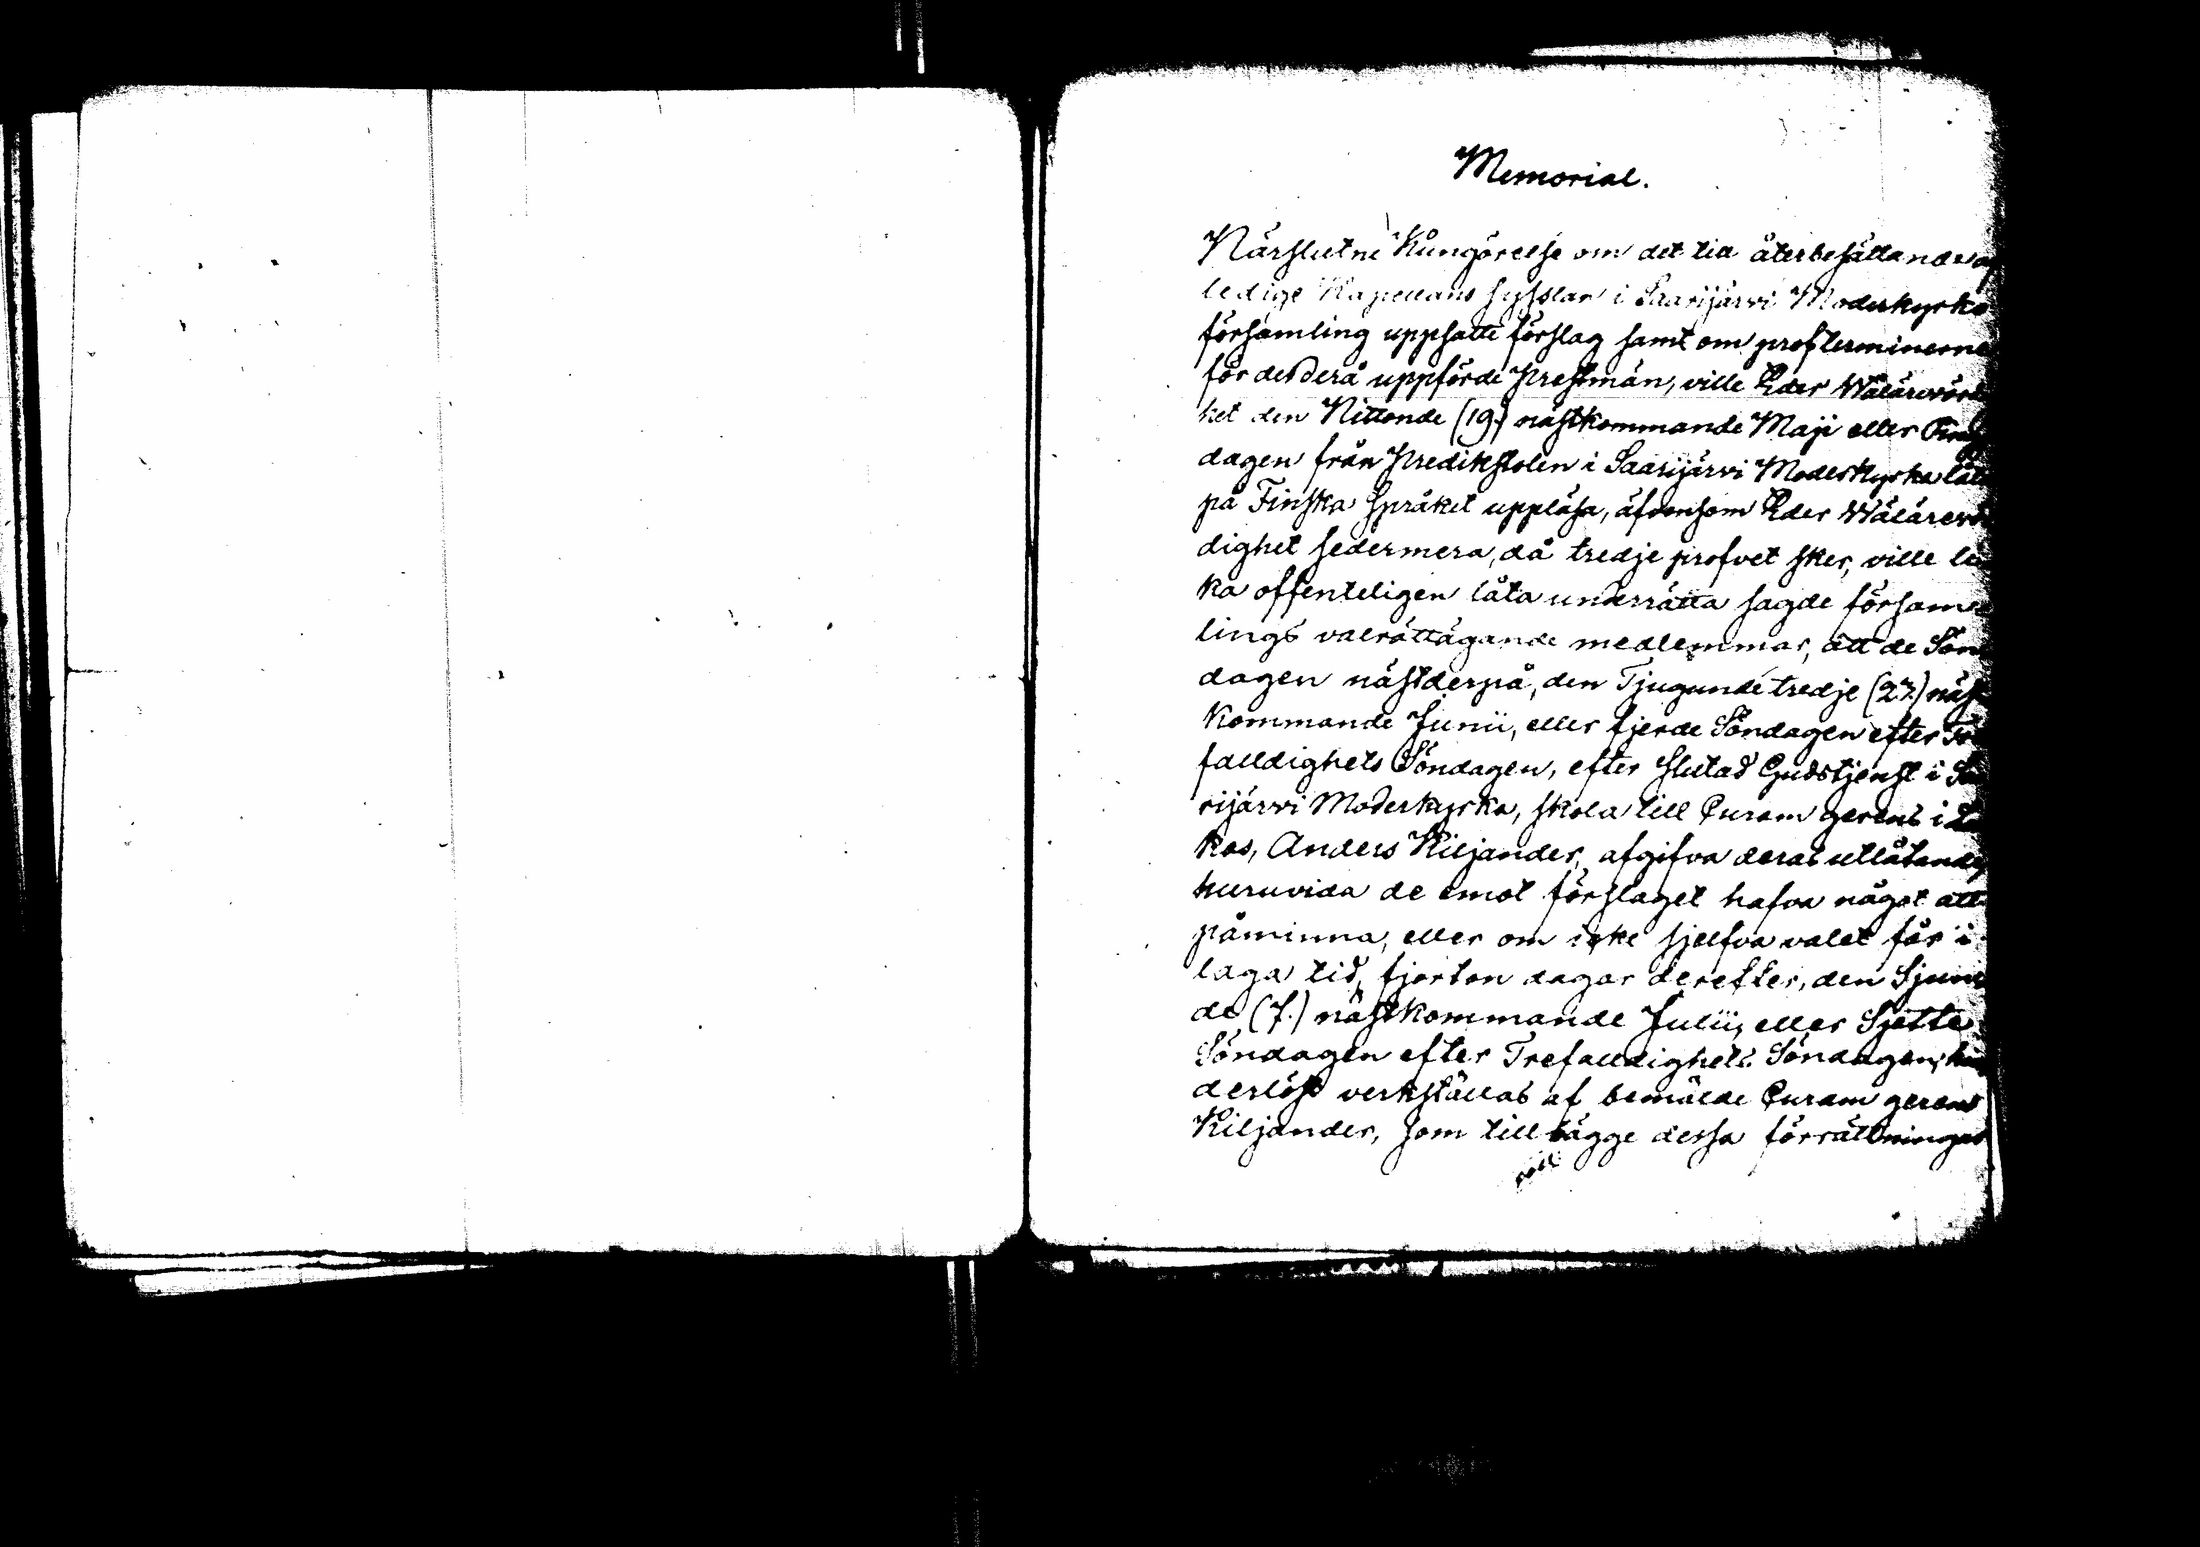 Memorial.
Närslutne Kungörelse om det till återbesättande af
ledige Kapellans sysslan i Saarijärvi Moderkyrko
församling uppsatte förslag samt om profterminerne
för de derå uppförde Prestmän, ville Eder Wälärevör
het den Nittonde (19.) nästkommande Maji eller
dagen från Predikstolen i Saarijärvi Moderkyrka låta
på Finska Språket uppläsa, äfvensom Eder Wälärevör
dighet sedermera, då tredje profvet sker, ville li
ka offenteligen låta underrätta sagde försam
lings valrättägande medlemmar, att de Sön
dagen nästderpå, den Tjugunde tredje (23.) näst
kommande Junii, eller fjerde Söndagen efter Tre
falldighets Söndagen, efter slutad Gudstjenst i Saa
rijärvi Moderkyrka, skola till Curam gerens i
kas, Anders Kiljander, afgifva deras utlåtande,
huruvida de emot förslaget hafva något att
påminna, eller om icke sjelfva valet får i
laga tid, fjorton dagar derefter, den Sjun
de (7.) nästkommande Julii, eller Sjette
Söndagen efter Trefalldighets Söndagen, hin
derlöst verkställas af bemälde Curam gerens
Kiljander, som till bägge dessa förrättningar